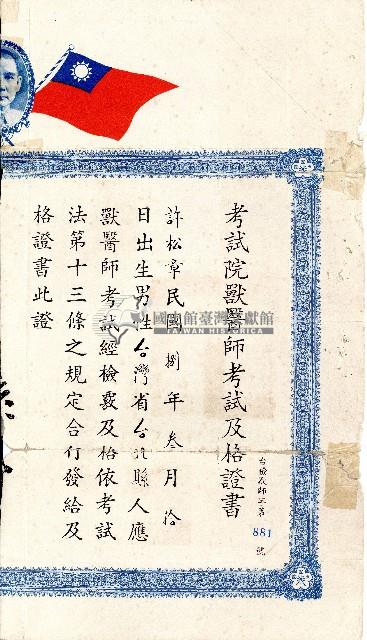 考試院獸醫師考試及格證書
許松章民國捌年叁月拾
日出生男性台灣省台北縣人應
獸醫師考試經檢覈及格依考試
法第十三條之規定合行發給及
格證書此證
881
號
國史館臺灣文獻館
TAIWAN HISTORICA